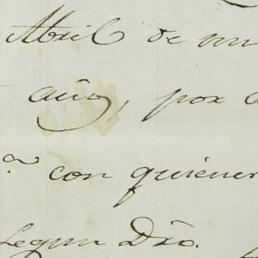 Abril de mi
año, por
a con quiene
segun Dro.